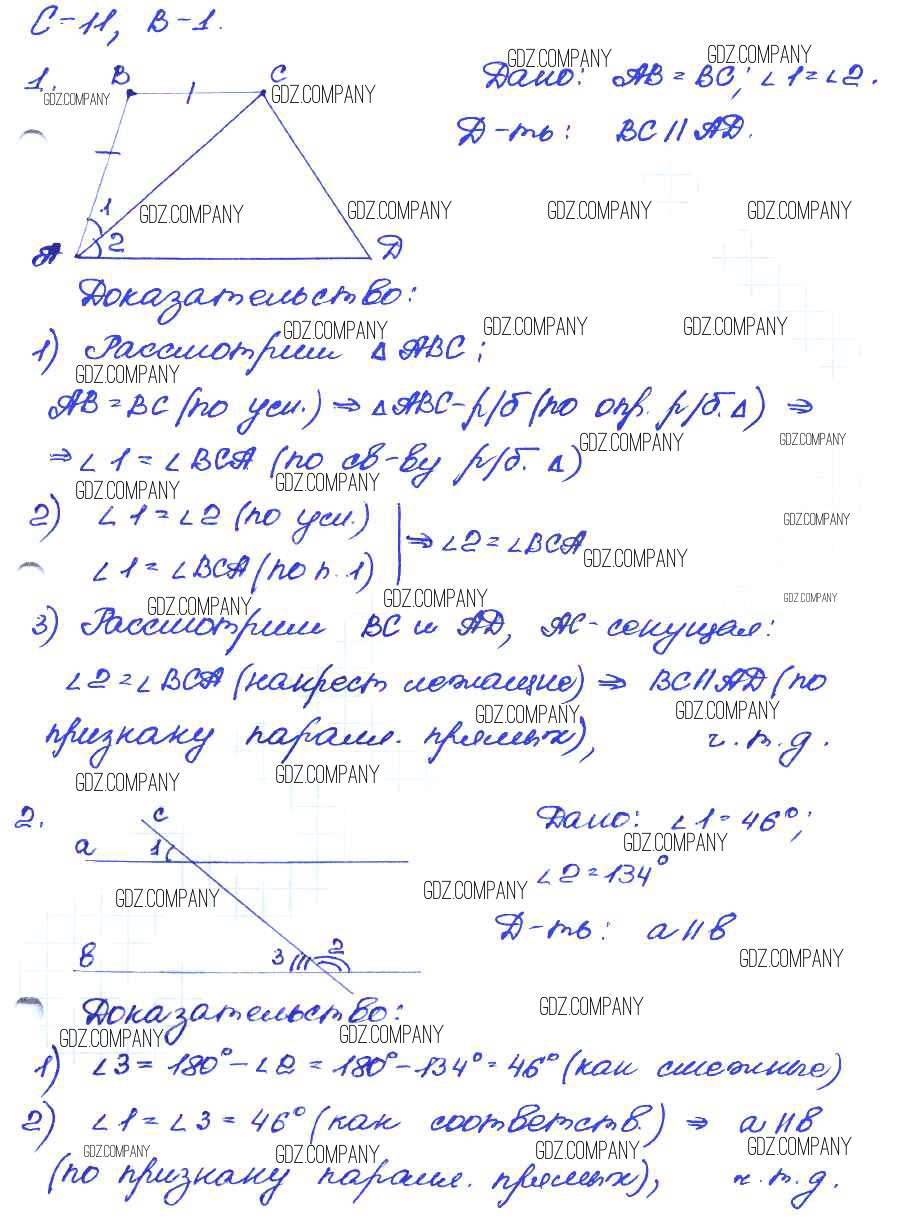 С-11, В-1.
1.
B
C
Дано: AB = BC; ∠1 = ∠2.
Д-ть: BC || AD.
1
2
A
D
Доказательство:
1) Рассмотрим △ ABC;
AB = BC (по усл.) ⇒ △ABC - р/б (по опр. р/б. △) ⇒
⇒ ∠1 = ∠BCA (по св-ву р/б. △)
2) ∠1 = ∠2 (по усл.)
∠1 = ∠BCA (по п. 1)
⇒ ∠2 = ∠BCA
3) Рассмотрим BC и AD, AC - секущая:
∠2 = ∠BCA (накрест лежащие) ⇒ BC || AD (по
признаку паралл. прямых), ч.т.д.
2.
c
a
1
Дано: ∠1 = 46°;
∠2 = 134°
Д-ть: a || в
в
3
2
Доказательство:
1) ∠3 = 180° - ∠2 = 180° - 134° = 46° (как смежные)
2) ∠1 = ∠3 = 46° (как соответств.) ⇒ a || в
(по признаку паралл. прямых), ч.т.д.
GDZ.COMPANY